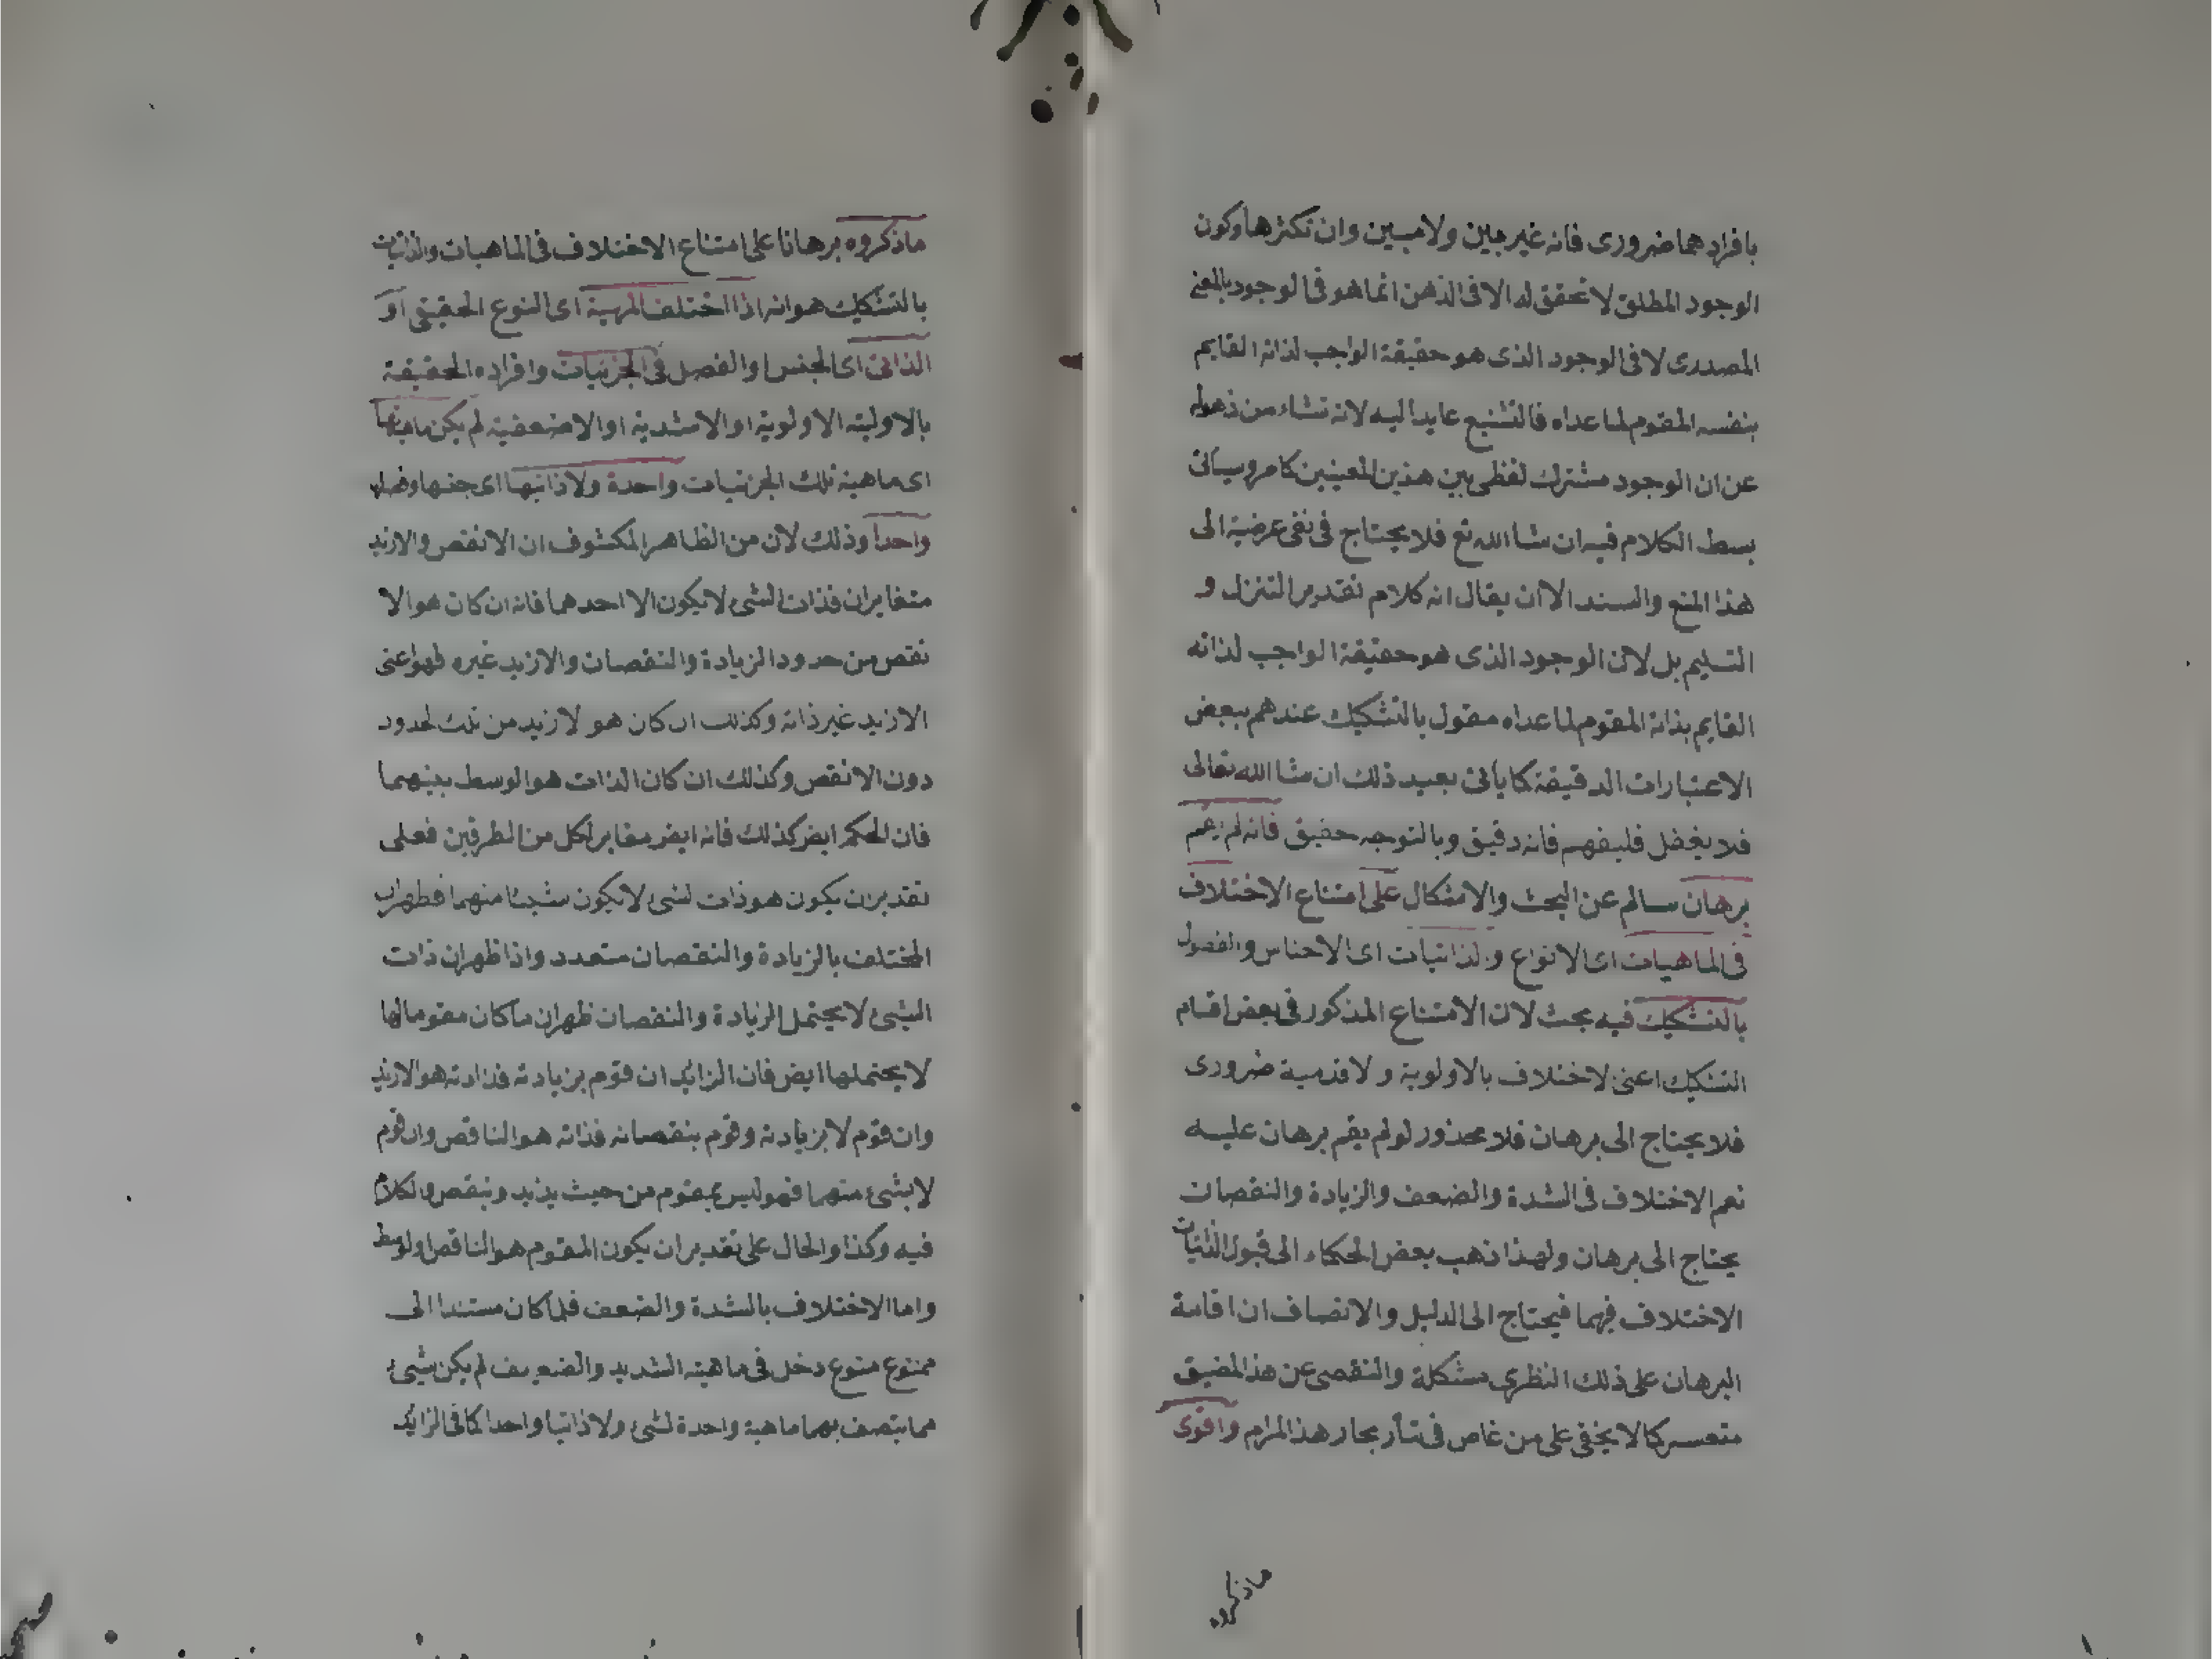 بافرادهما ضرورى فانه غير مبين ولا مبين وان تكثرها وكون
الوجود المطلق لا تحقق له الا فى الذهن انما هو فى الوجود بالمعنى
المصدرى لا فى الوجود الذى هو حقيقة الواجب لذاته القايم
بنفسه المقوم لما عداه فالتشنيع عايد اليه لانه نشاء من ذهوله
عن ان الوجود مشترك لفظى بين هذين المعنيين كما مر وسياتى
بسط الكلام فيه ان شا الله تع فلا يحتاج فى نفى عرضية الى
هذا المنع والسند الا ان يقال انه كلام تقدير التنزل و
التسليم بل لان الوجود الذى هو حقيقة الواجب لذاته
القايم بذاته المقوم لما عداه مقول بالتشكيك عندهم ببعض
الاعتبارات الدقيقة كما ياتى بعيد ذلك ان شا الله تعالى
فلا يغفل فليفهم فانه دقيق وبالتوجه حقيق فانه لم يقم
برهان سالم عن البحث والاشكال على امتناع الاختلاف
فى الماهيات اى الانواع والذاتيات اى الاجناس والفصول
بالتشكيك فيه بحث لان الامتناع المذكور فى بعض اقسام
التشكيك اعنى الاختلاف بالاولوية والاقدمية ضرورى
فلا يحتاج الى برهان فلا محذور لو لم يقم برهان عليه
نعم الاختلاف فى الشدة والضعف والزيادة والنقصان
يحتاج الى برهان ولهذا ذهب بعض الحكماء الى قبول الذاتيات
الاختلاف فيهما فيحتاج الى الدليل والانصاف ان اقامة
البرهان على ذلك النظرى مشكلة والتقصى عن هذا المضيق
متعسر كما لا يخفى على من غاص فى تيار بحار هذا المرام واقوى
ماذكروه
ماذكروه برهانا على امتناع الاختلاف فى الماهيات والذاتيات
بالتشكيك هو انه اذا اختلف المهية اى النوع الحقيقى او
الذاتى اى الجنس او الفصل فى الجزئيات وافراده الحقيقة
بالاولية الاولوية او الاشدية او الاضعفية لم يكن ماهيتها
اى ماهية تلك الجزئيات واحدة ولا ذاتيها اى جنسها وفصلها
واحدا وذلك لان من الظاهر المكشوف ان الانقص والازيد
متغايران فذات الشى لا يكون الا احدهما فانه ان كان هو الا
نقص من حدود الزيادة والنقصان والازيد غيره فهو اعنى
الازيد غير ذاته وكذلك ان كان هو الازيد من تلك الحدود
دون الانقص وكذلك ان كان الذات هو الوسط بينهما
فان الحكم ايض كذلك فانه ايض مغاير لكل من الطرفين فعلى
تقدير ان يكون هو ذات الشى لا يكون شيئا منهما فظهر ان
المختلف بالزيادة والنقصان متعدد واذا ظهر ان ذات
الشى لا يحتمل الزيادة والنقصان ظهر ان ما كان مقوما لها
لا يحتملها ايض فان الزائد ان قوم بزيادته فذاته هو الازيد
وان قوم لا بزيادته وقوم بنقصانه فذاته هو الناقص وان قوم
لا بشى منهما فهو ليس بمقوم من حيث يزيد وينقص والكلام
فيه وكذا الحال على تقدير ان يكون المقوم هو الناقص او الوسط
واما الاختلاف بالشدة والضعف فلما كان مستندا الى
متنوع منوع دخل فى ماهية الشديد والضعيف لم يكن شيئ
مما يتصف بهما ماهية واحدة لشى ولا ذاتيا واحدا كما فى الزائد